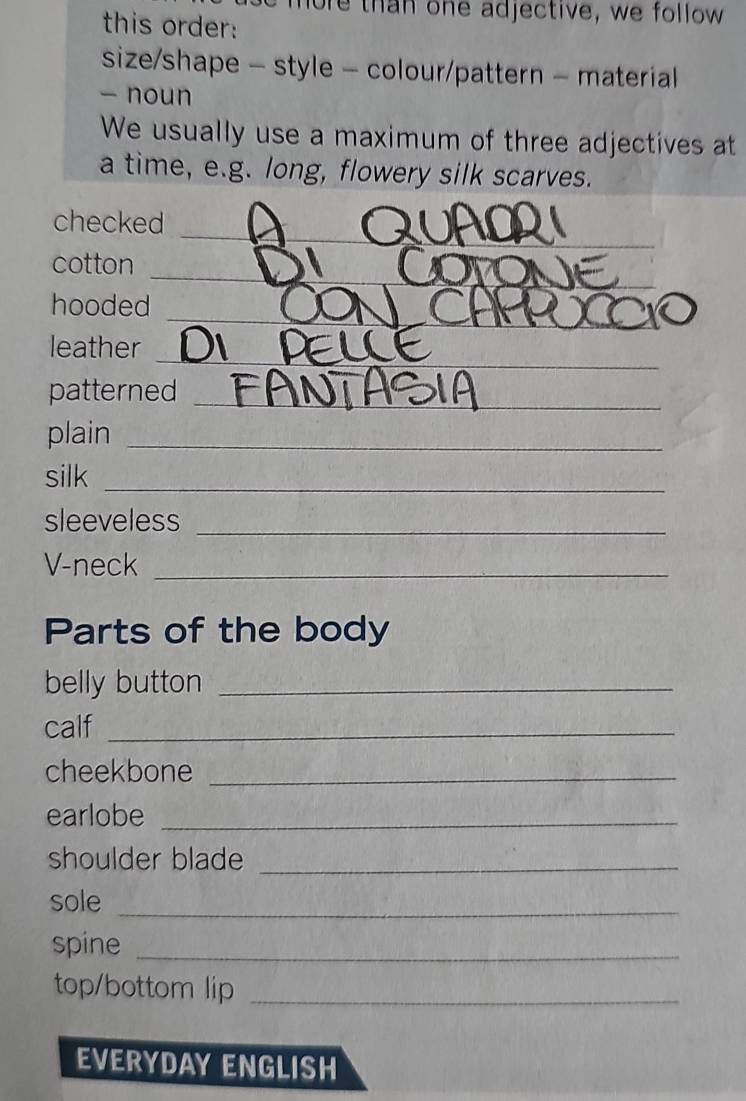 use more than one adjective, we follow
this order:
size/shape – style – colour/pattern – material
– noun
We usually use a maximum of three adjectives at
a time, e.g. long, flowery silk scarves.
checked A QUADRI
cotton DI COTONE
hooded CON CAPPUCCIO
leather DI PELLE
patterned FANTASIA
plain
silk
sleeveless
V-neck
Parts of the body
belly button
calf
cheekbone
earlobe
shoulder blade
sole
spine
top/bottom lip
EVERYDAY ENGLISH